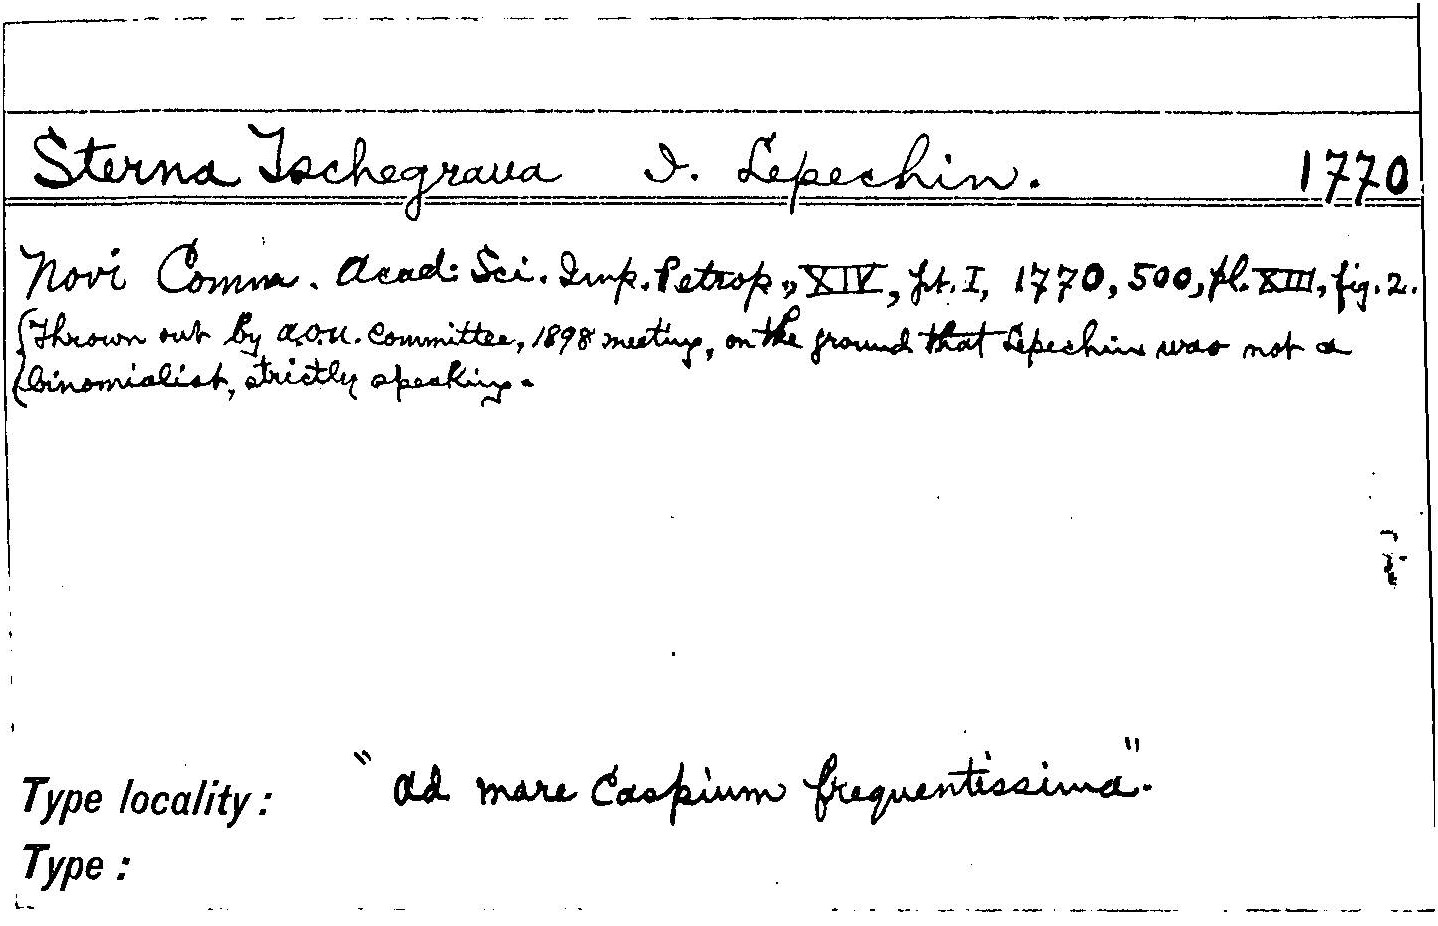 Sterna Tschegrava I. Lepechin. 1770
Novi Comm. Acad. Sci. Imp. Petrop., XIV, pt. I, 1770, 500, pl. XIII, fig. 2.
Thrown out by A.O.U. Committee, 1898 meeting, on the ground that Lepechin was not a
binomialist, strictly speaking.
Type locality: "ad mare Caspium frequentissima".
Type: